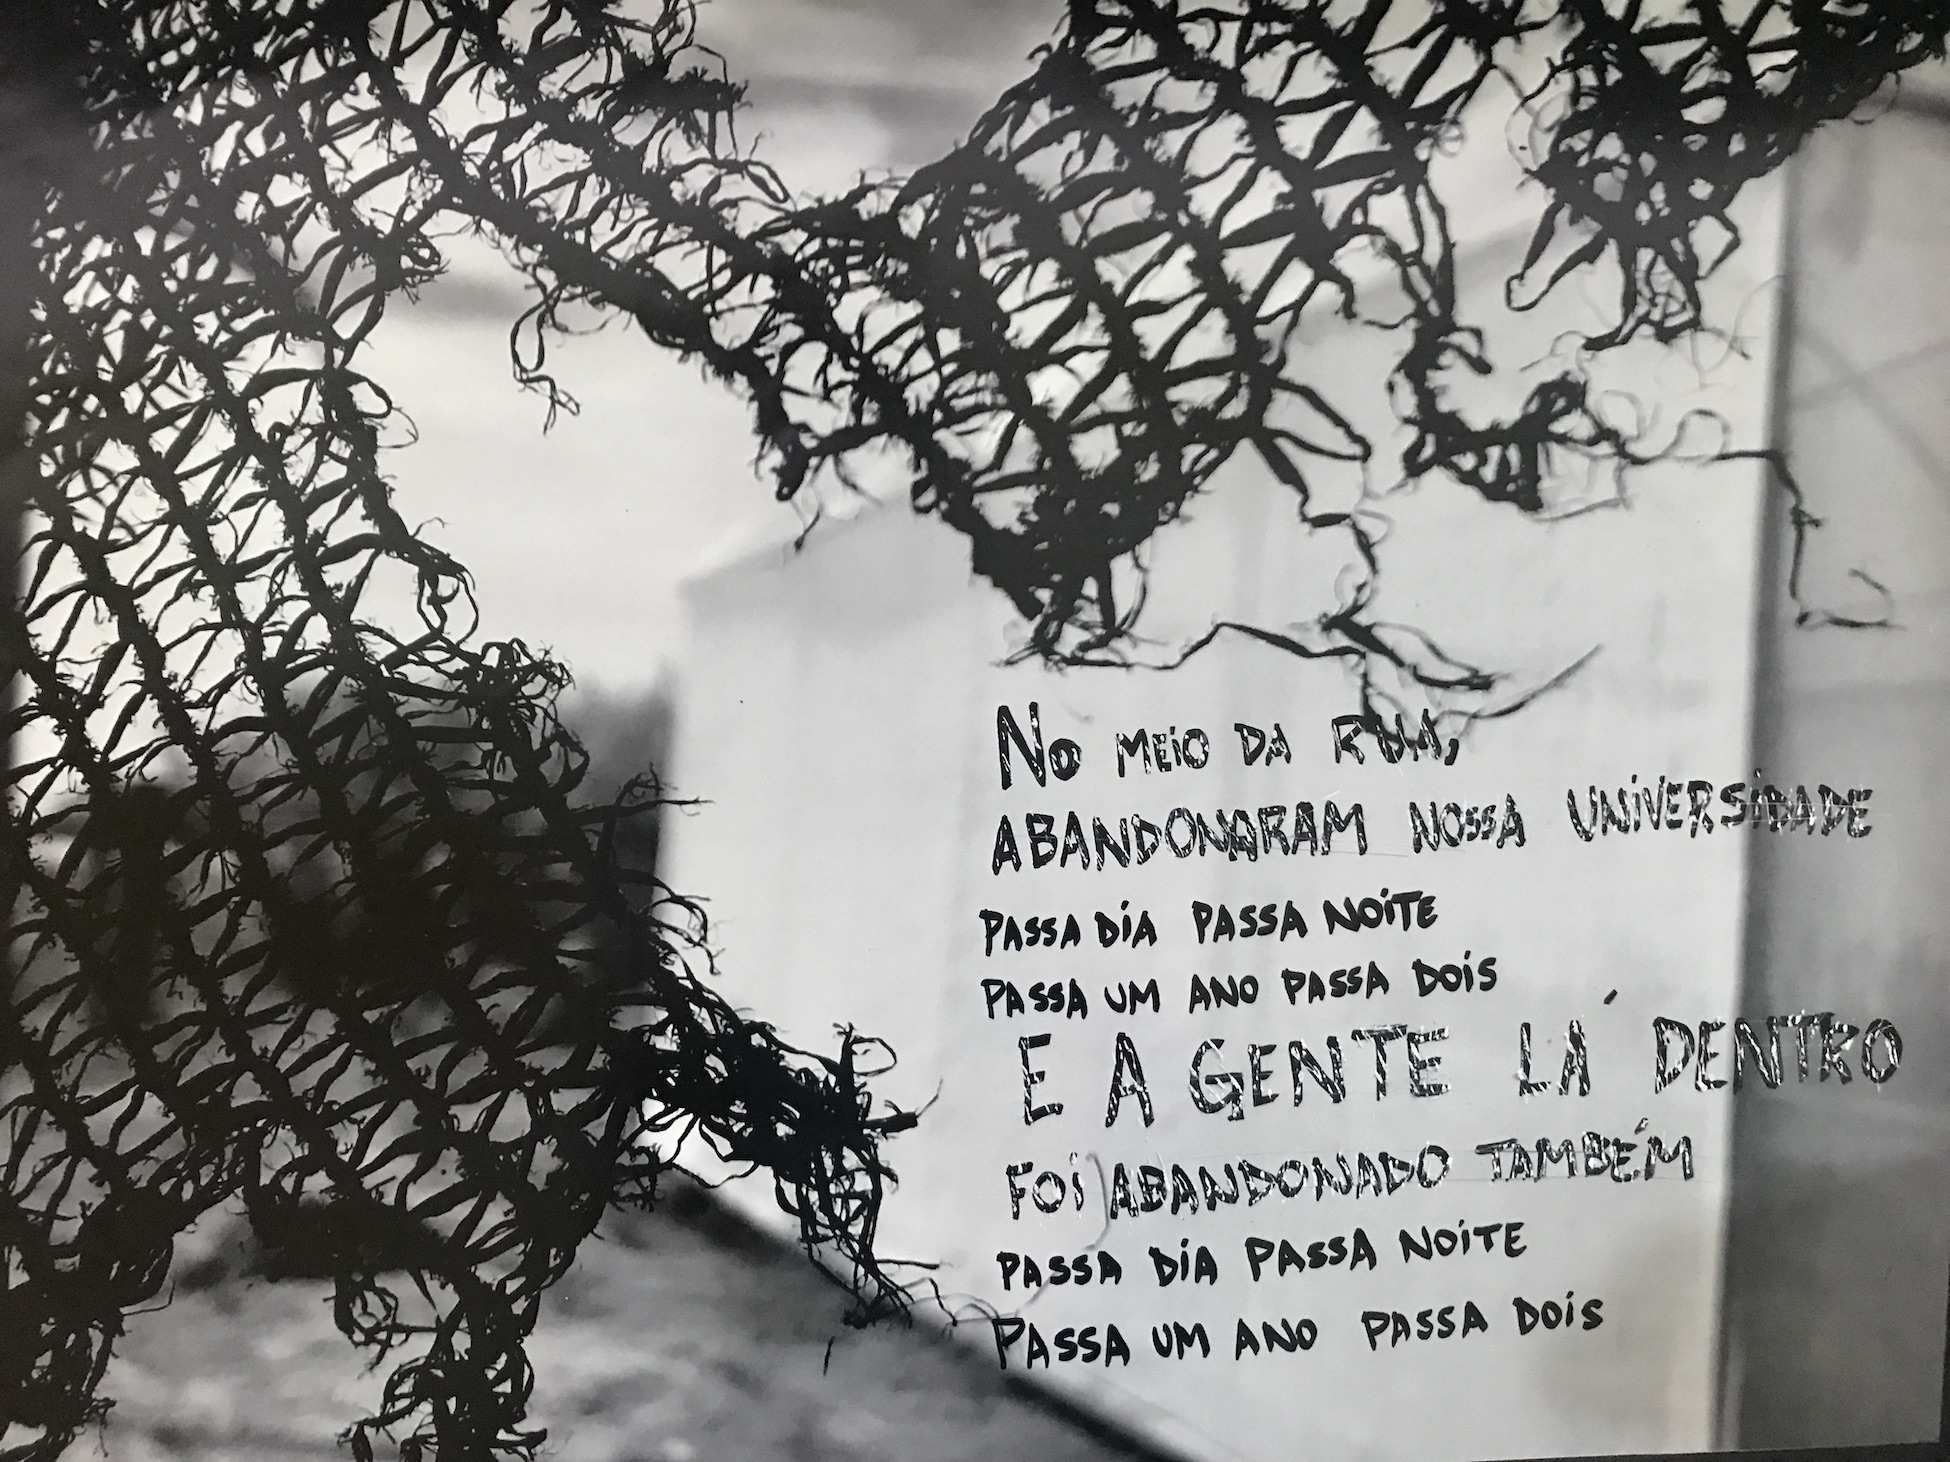 No MEiO DA RUA,
ABANDONARAM NOSSA UNiVERSiDADE
PASSA DiA PASSA NOiTE
PASSA UM ANO PASSA DOiS
E A GENTE LÁ DENTRO
FOi ABANDONADO TAMBÉM
PASSA DiA PASSA NOiTE
PASSA UM ANO PASSA DOiS